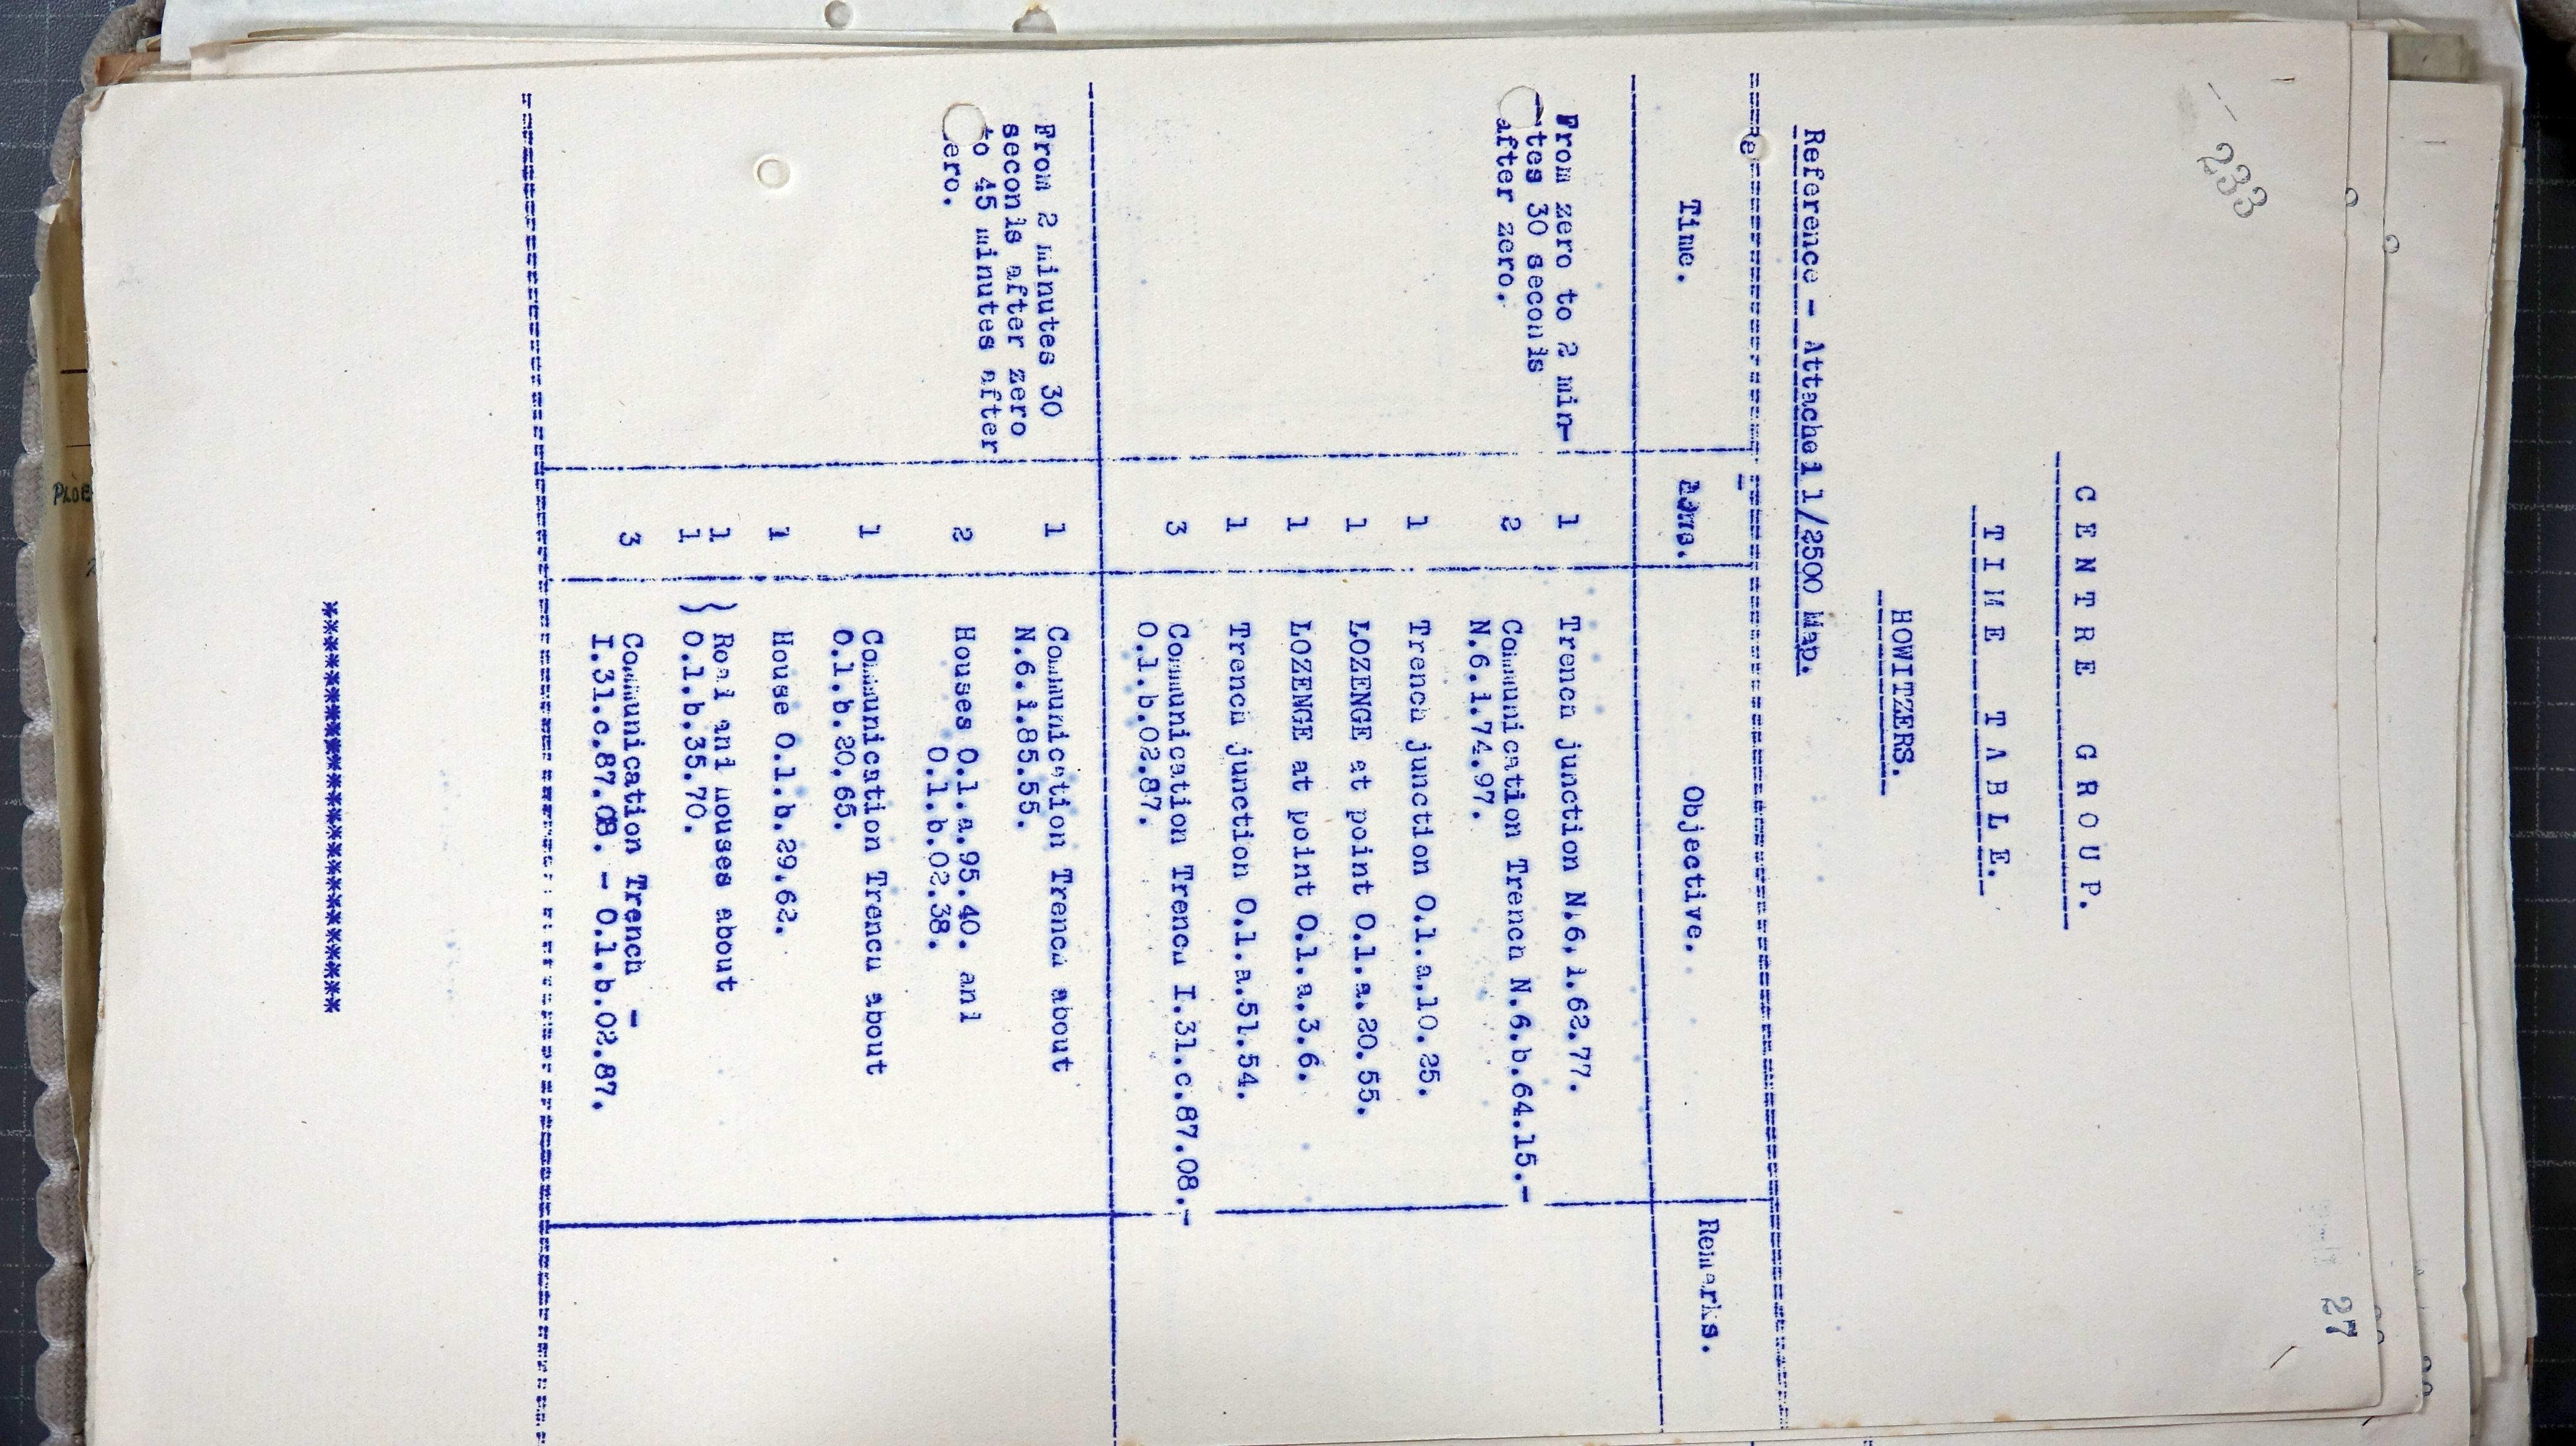 233
27
CENTRE GROUP.
TIME TABLE.
HOWITZERS.
Reference - Attached 1/2500 Map.
Time. Hows. Objective. Remarks.
From zero to 2 min- 1 Trench junction N.6.d.62.77.
tes 30 seconds 2 Communication Trench N.6.b.64.15.-
after zero. N.6.d.74.97.
1 Trench junction O.1.a.10.25.
1 LOZENGE at point O.1.a.20.55.
1 LOZENGE at point O.1.a.3.6.
1 Trench junction O.1.a.51.54.
3 Communication Trench I.31.c.87.08.-
O.1.b.02.87.
From 2 minutes 30 1 Communication Trench about
seconds after zero N.6.d.85.55.
to 45 minutes after 2 Houses O.1.a.95.40. and
ero. O.1.b.02.38.
1 Communication Trench about
O.1.b.20.65.
1 House O.1.b.29.62.
1 } Road and houses about
1 } O.1.b.35.70.
3 Communication Trench -
I.31.c.87.08. - O.1.b.02.87.
**************************